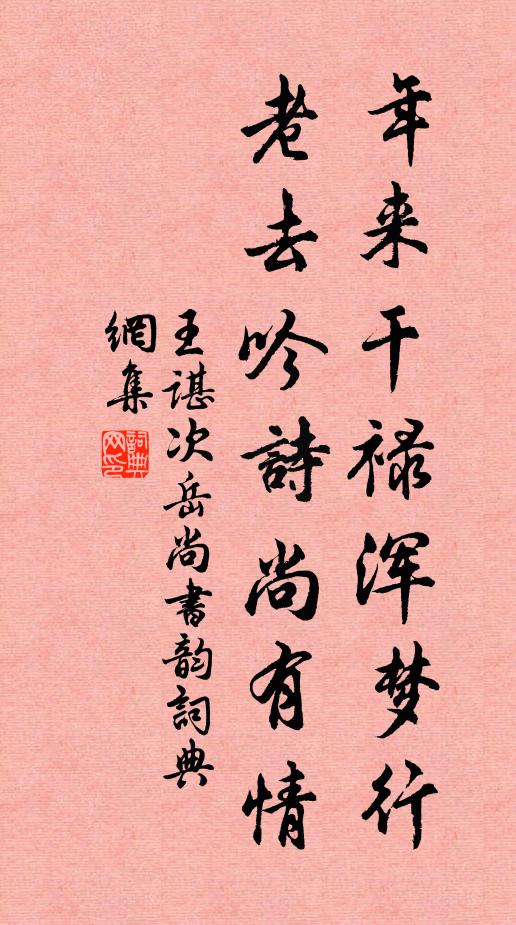 年来干禄浑梦行
老去吟詩尚有情
王諶次岳尚書韵詞典
網集
詞典網印